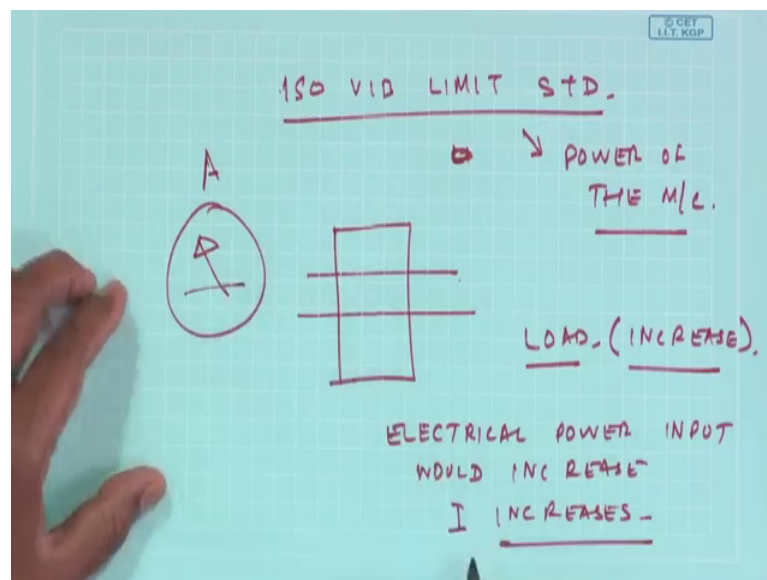 © CET
I.I.T. KGP
ISO VIB LIMIT STD.
A
↘ POWER OF
THE M/C.
LOAD. (INCREASE).
ELECTRICAL POWER INPUT
WOULD INCREASE
I INCREASES -